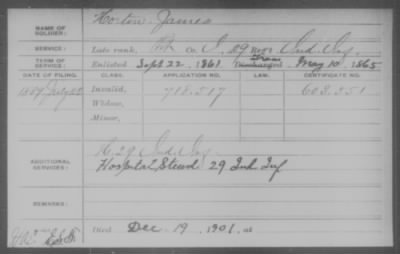 NAME OF SOLDIER: Horton James
SERVICE: Late rank, Co. I, 29 Reg't Ind. Inf.
TERM OF SERVICE: Enlisted Sept 22, 1861 Discharged May 10, 1865
DATE OF FILING. CLASS. APPLICATION NO. LAW. CERTIFICATE NO.
1889 July Invalid, 718.517 603.551
Widow,
Minor,
ADDITIONAL SERVICES: 29 Ind. Inf.
Hospital Steward 29 Ind Inf
REMARKS:
Died Dec. 19, 1901, at